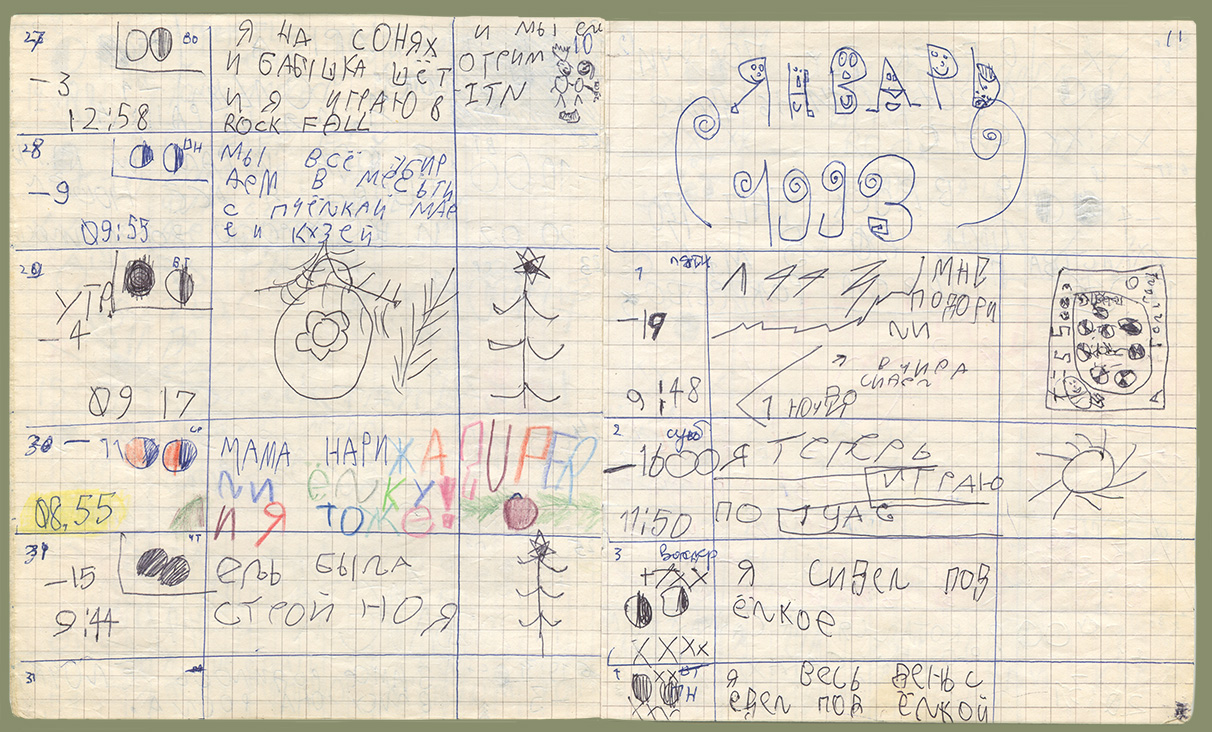 27
ВО
-3
12:58
Я НА СОНЯХ
И БАБЫШКА ШЁТ
И Я ИГРАЮ В
ROCK FALL
И МЫ ЕЙ
10
28
ПН
-9
09:55
МЫ ВСЁ УБИР
АЕМ В МЕСЬТИ
С ПЧЁЛКАЙ МАЕ
Е И КХЗЕЙ
ВТ
УТР
-4
09 17
30
-11
СР
08,55
МАМА НАРИЖА
ЛИ ЁЛКУ!
И Я ТОЖЕ!
SUPER
31
ЧТ
-15
9:44
ЕЛЬ БЫЛА
СТРОЙНОЯ
31
11
ЯНВАРЬ
1993
1
-19
9:48
МНЕ
ПОДОРИ
ЛИ
2
субб
-16
11:50
Я ТЕПЕРЬ
ИГРАЮ
ПО
3
воскр
Я СИДЕЛ ПОД
ЁЛКОЕ
ВТ
ПН
Я ВЕСЬ ДЕНЬ С
ЕДЕЛ ПОД ЁЛКОЙ